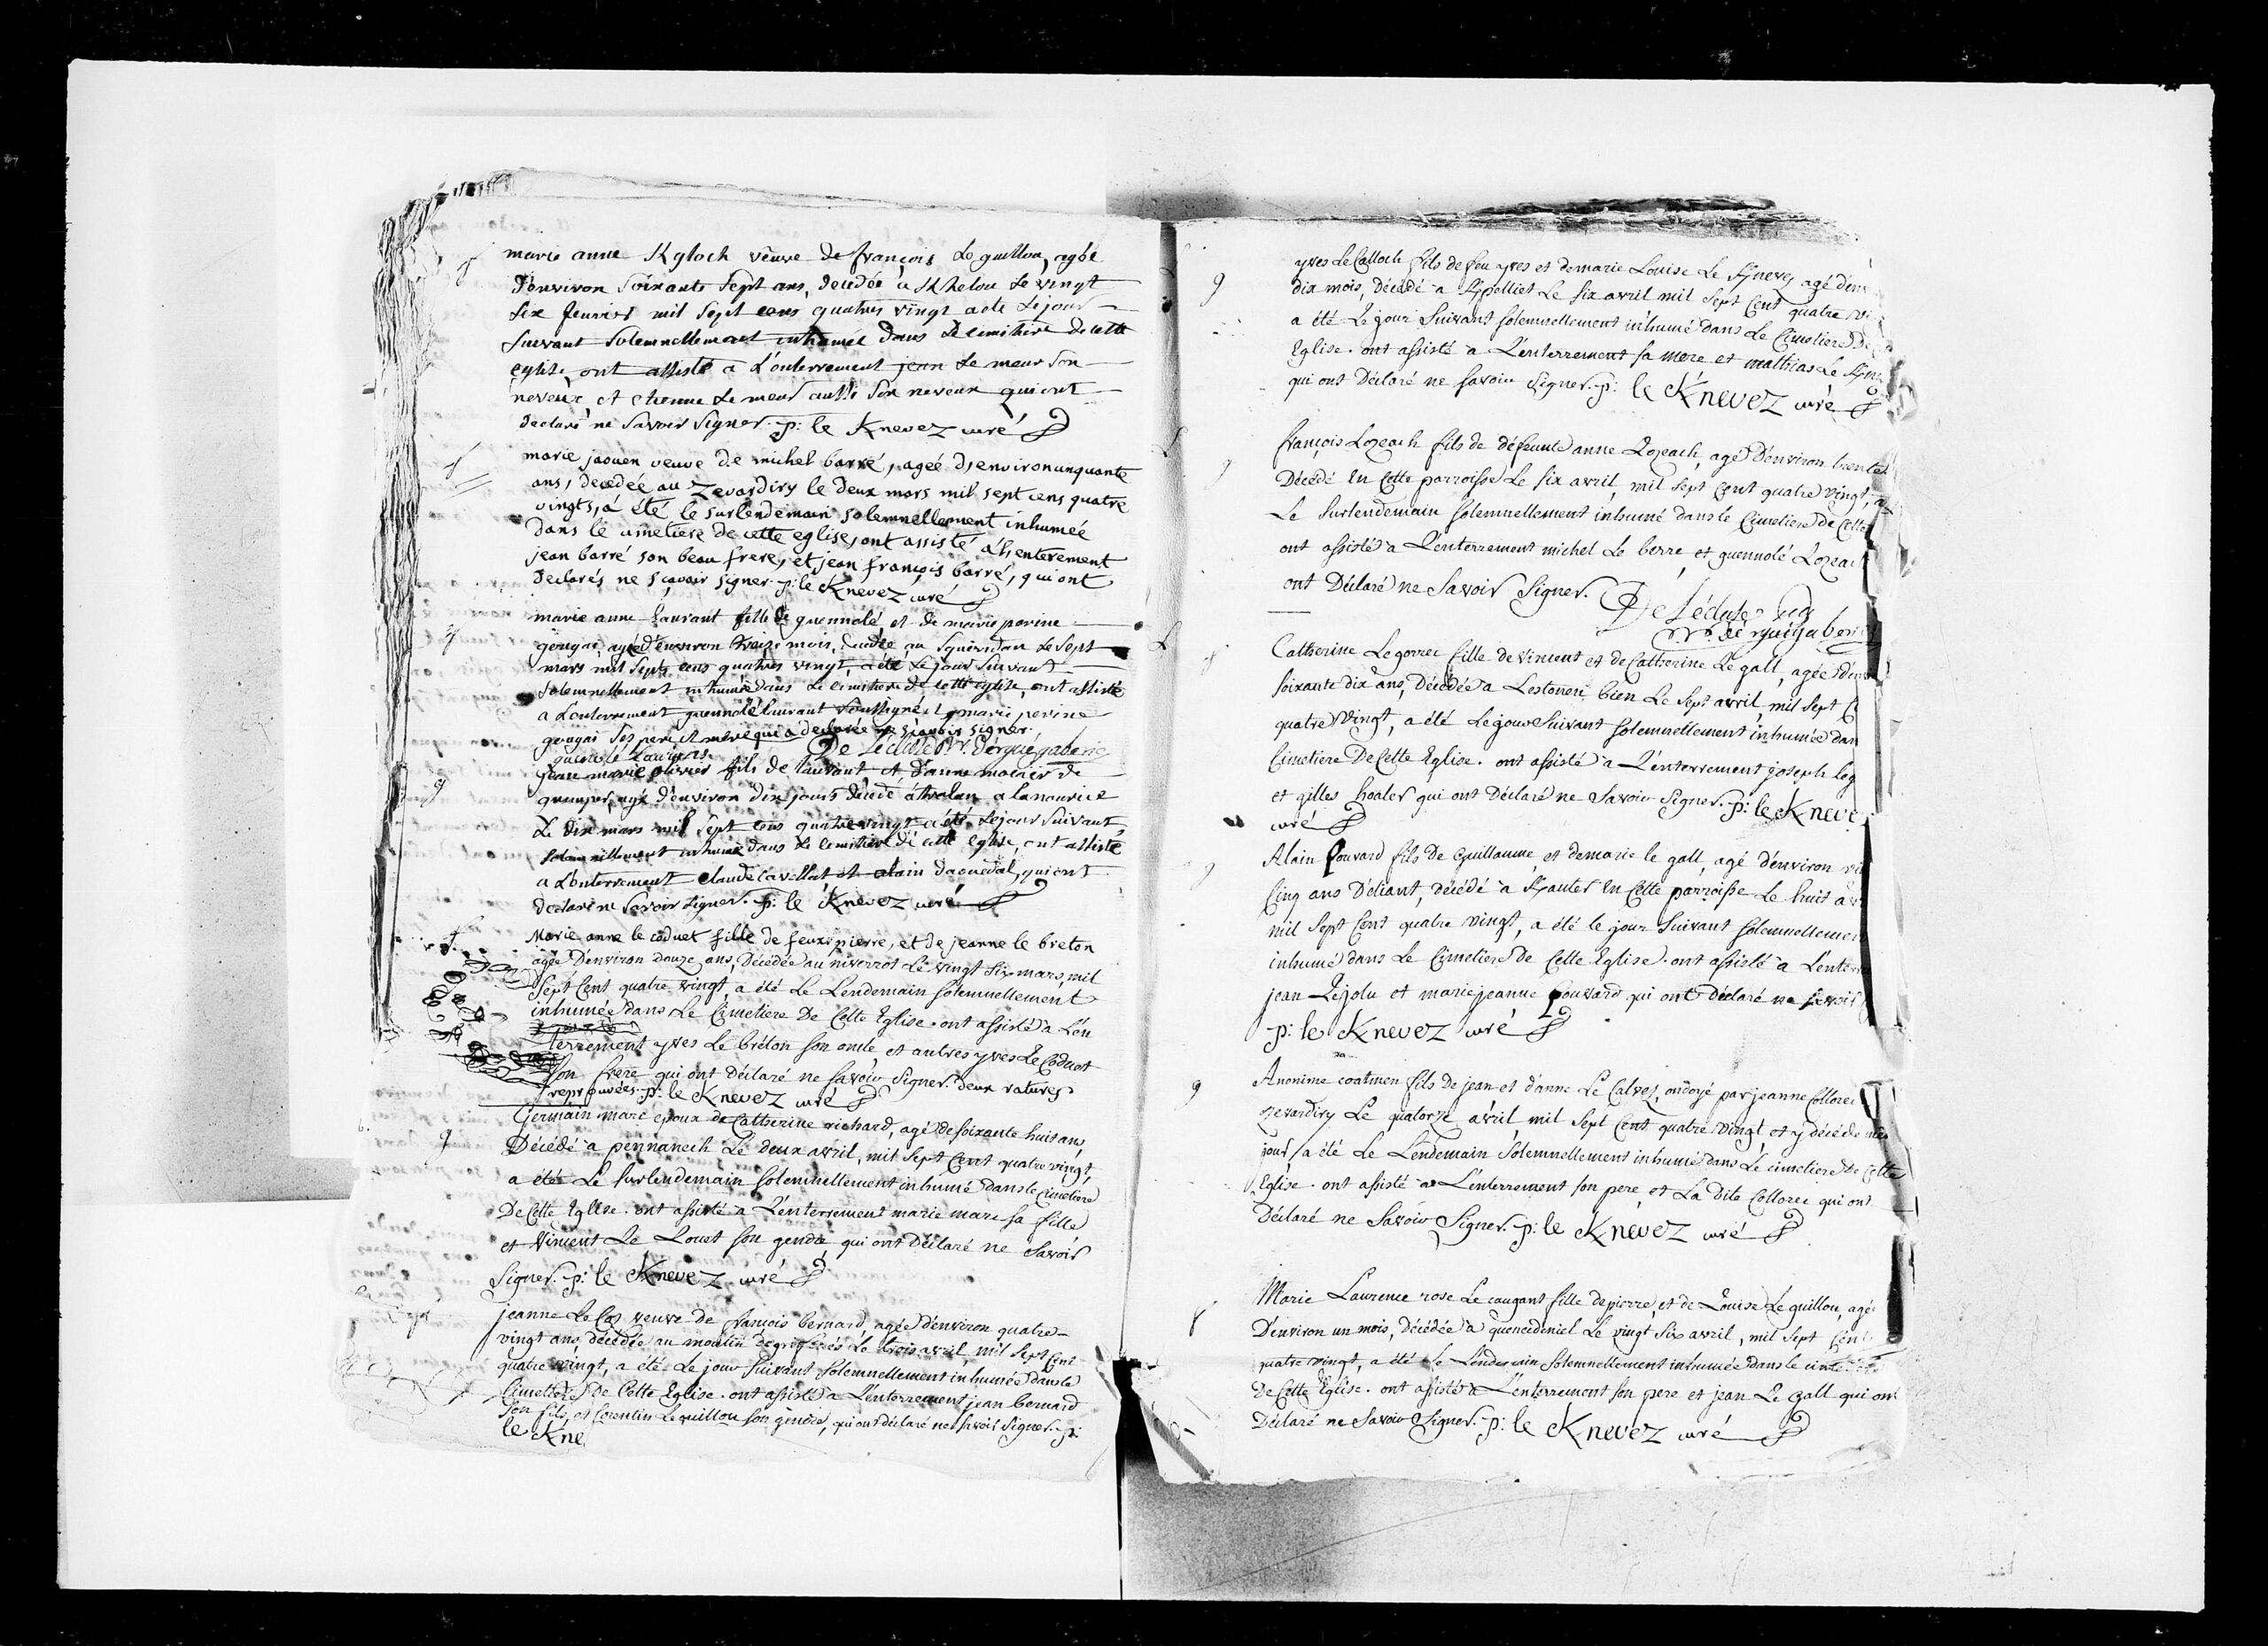 marie anne Kgloch veuve de françois Le guillou, agée
d'environ soixante sept ans, decédée a Khelou Le vingt
six feuvrier mil sept cens quatres vingt a eté Le jour
suivant solemnellement inhumée dans Le cimitiere de cette
eglise, ont assisté a L'enterrement jean Le meur son
neveux et etienne Le meur aussi son neveux qui ont
declaré ne savoir signer. p: le Knevez curé
marie jaouen veuve de michel barré, ageé d'environ cinquante
ans, decedée au Zevardiry le deux mars mil sept cens quatre
vingts, a été le surlendemain solemnellement inhumée
dans le cimetiere de cette eglise, ont assisté a l'enterement
jean barré son beau frere, et jean françois barré, qui ont
declarés ne sçavoir signer. p: le Knevez curé
marie anne Laurant fille de guennolé et de marie perine
gougai, agée d'environ treize mois, decedée au Squividan Le sept
mars mil sept cens quatres vingt a été Le jour suivant
solemnellement inhumée dans Le cimitiere de cette eglise, ont assisté
a L'enterrement guennolé Laurant soussigné et marie perine
gougai ses pere et mere qui a declarée ne sçavoir signer.
guenolé Laurans De Léclude Rr. d'ergué gaberic
jean marie olivier fils de Laurant et d'anne
quimper, agé d'environ dix jours decedé a trolan a la nourice
Le dix mars mil sept cens quatre vingt a été Le jour suivant
solemnellement inhumé dans Le cimitiere de cette eglise, ont assisté
a L'enterrement claude Cavellat et alain daouedal, qui ont
declaré ne savoir signer. p: le Knevez curé
Marie anne le coduet fille de feux pierre, et de jeanne le breton
agée D'environ douze ans, Décédée au niverrot Le vingt six mars, mil
Sept Cent quatre vingt, a été Le Lendemain solemnellement
inhumée dans Le Cimetiere De Cette Eglise. ont assisté à L'en
terrement yves Le bréton son oncle, et autres yves Le Coduet
son frere qui ont Déclaré ne savoir signer. deux ratures
reprouvées. p: le Knevez curé
Germain marc epoux de Catherine richard, agé de soixante huit ans,
Décédé à pennanech Le deux avril, mil sept Cent quatre vingt,
a été Le surlendemain solemnellement inhumé dans le Cimetiere
De Cette Eglise. ont assisté a L'enterrement marie marc sa fille
et Vincent Le Louet son gendre qui ont Déclaré ne savoir
Signer. p: le Knevez curé
jeanne Le Cos veuve de francois bernard, agée d'environ quatre
vingt ans, décédée au moulin Le trois avril, mil sept Cent
quatre vingt, a été Le jour suivant solemnellement inhumée dans le
Cimetiere De Cette Eglise. ont assisté a L'enterrement jean bernard
son fils, et Corentin Le guillou son gendre, qui ont déclaré ne savoir signer. p:
le Kne
yves Le Calloch fils de feu yves et de marie Louise Le Knevez agé d'env
dix mois, Décédé a Kpelliet Le six avril mil sept Cent quatre vi
a été Le jour suivant solemnellement inhumé dans Le Cimetiere De
Eglise. ont assisté a L'enterrement sa mere et mathias Le Kne
qui ont Déclaré ne savoir signer. p: le Knevez curé
françois Lozeach fils de défeunte anne Lozeach, agé D'environ trente
Décédé En Cette parroisse Le six avril, mil sept Cent quatre vingt, a
Le surlendemain solemnellement inhumé dans le Cimetiere de Cette
ont assisté a L'enterrement michel Le berre, et guennolé Lozeach
ont Déclaré ne savoir signer. De Léclude
Rr. d'erguégaberic
Catherine Le gorrec fille de Vincent et de Catherine Le gall, agée d'env
soixante dix ans, Décédée a Lestonen bien Le sept avril, mil sept C
quatre vingt, a été Le jour suivant solemnellement inhumée dan
Cimetiere De Cette Eglise. ont assisté a L'enterrement joseph Leg
et gilles hoaler qui ont Déclaré ne savoir signer. p: le Kneve
curé
Alain Couvard fils de Guillaume, et de marie le gall, agé d'environ vi
Cinq ans D'eliant, Décédé à Kautes En Cette parroisse Le huit av
mil sept Cent quatre vingt, a été le jour suivant solemnellemen
inhumé dans Le Cimetiere De Cette Eglise. ont assisté a L'enterre
jean Le jolu et marie jeanne Couvard qui ont Déclaré ne savoir
p: le Knevez curé
Anonime coatmen fils de jean et d'anne Le Calvez, ondoyé par jeanne Collorec
zevardiry Le quatorze avril, mil sept Cent quatre vingt, et y décédé
jour, a été Le Lendemain solemnellement inhumé dans Le cimetiere De Cette
Eglise. ont assisté a L'enterrement son pere, et La dite Collorec qui ont
Déclaré ne savoir signer. p: le Knevez curé
Marie Laurence rose Le caugant fille de pierre, et de Louise Le guillou, agé
D'environ un mois, Décédée a quencideniel Le vingt six avril, mil sept Cent
quatre vingt, a été Le Lendemain solemnellement inhumée dans le cimetiere
De Cette Eglise. ont assisté a L'enterrement son pere et jean Le gall qui ont
Déclaré ne savoir signer. p: le Knevez curé